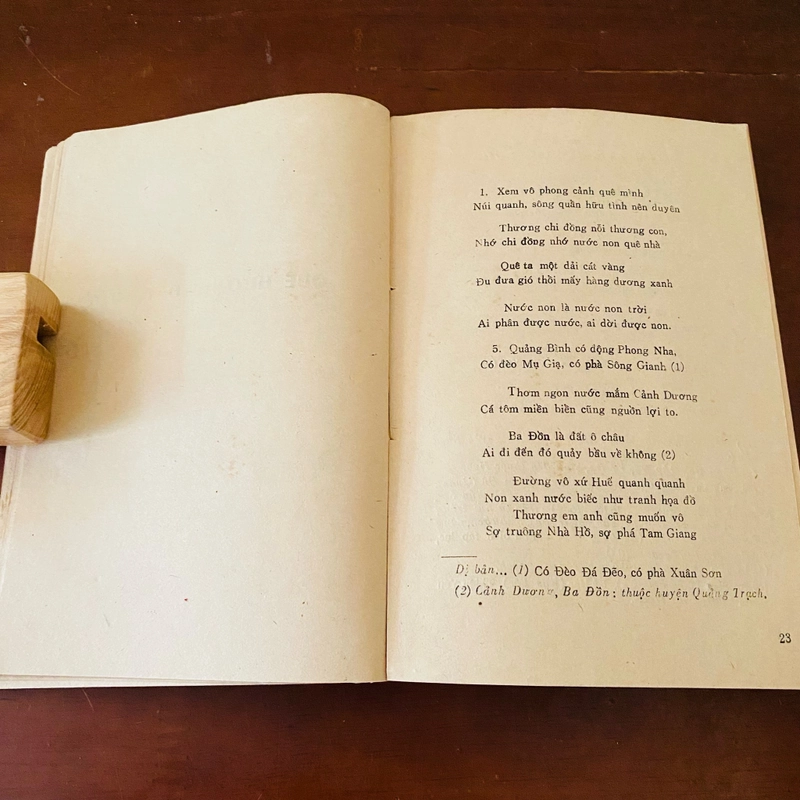 1. Xem vô phong cảnh quê mình
Núi quanh, sông quần hữu tình nên duyên
Thương chi đồng nỗi thương con,
Nhớ chi đồng nhớ nước non quê nhà
Quê ta một dải cát vàng
Đu đưa gió thổi mấy hàng dương xanh
Nước non là nước non trời
Ai phân được nước, ai dời được non.
5. Quảng Bình có động Phong Nha,
Có đèo Mụ Giạ, có phà Sông Gianh (1)
Thơm ngon nước mắm Cảnh Dương
Cá tôm miền biển cũng nguồn lợi to.
Ba Đồn là đất ô châu
Ai đi đến đó quảy bầu về không (2)
Đường vô xứ Huế quanh quanh
Non xanh nước biếc như tranh họa đồ
Thương em anh cũng muốn vô
Sợ truông Nhà Hồ, sợ phá Tam Giang
Dị bản... (1) Có Đèo Đá Đẽo, có phà Xuân Sơn
(2) Cảnh Dương, Ba Đồn: thuộc huyện Quảng Trạch.
23